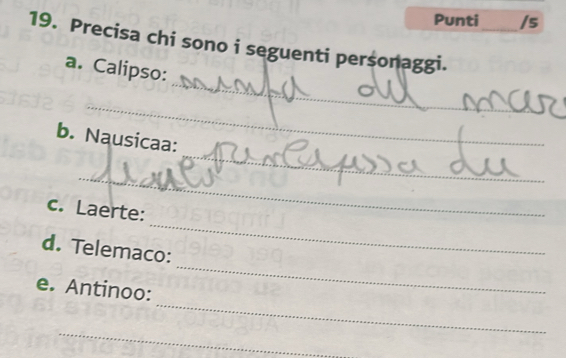 Punti ____/5
19. Precisa chi sono i seguenti personaggi.
a. Calipso: ninfa del mar
b. Nausicaa:
c. Laerte:
d. Telemaco:
e. Antinoo: